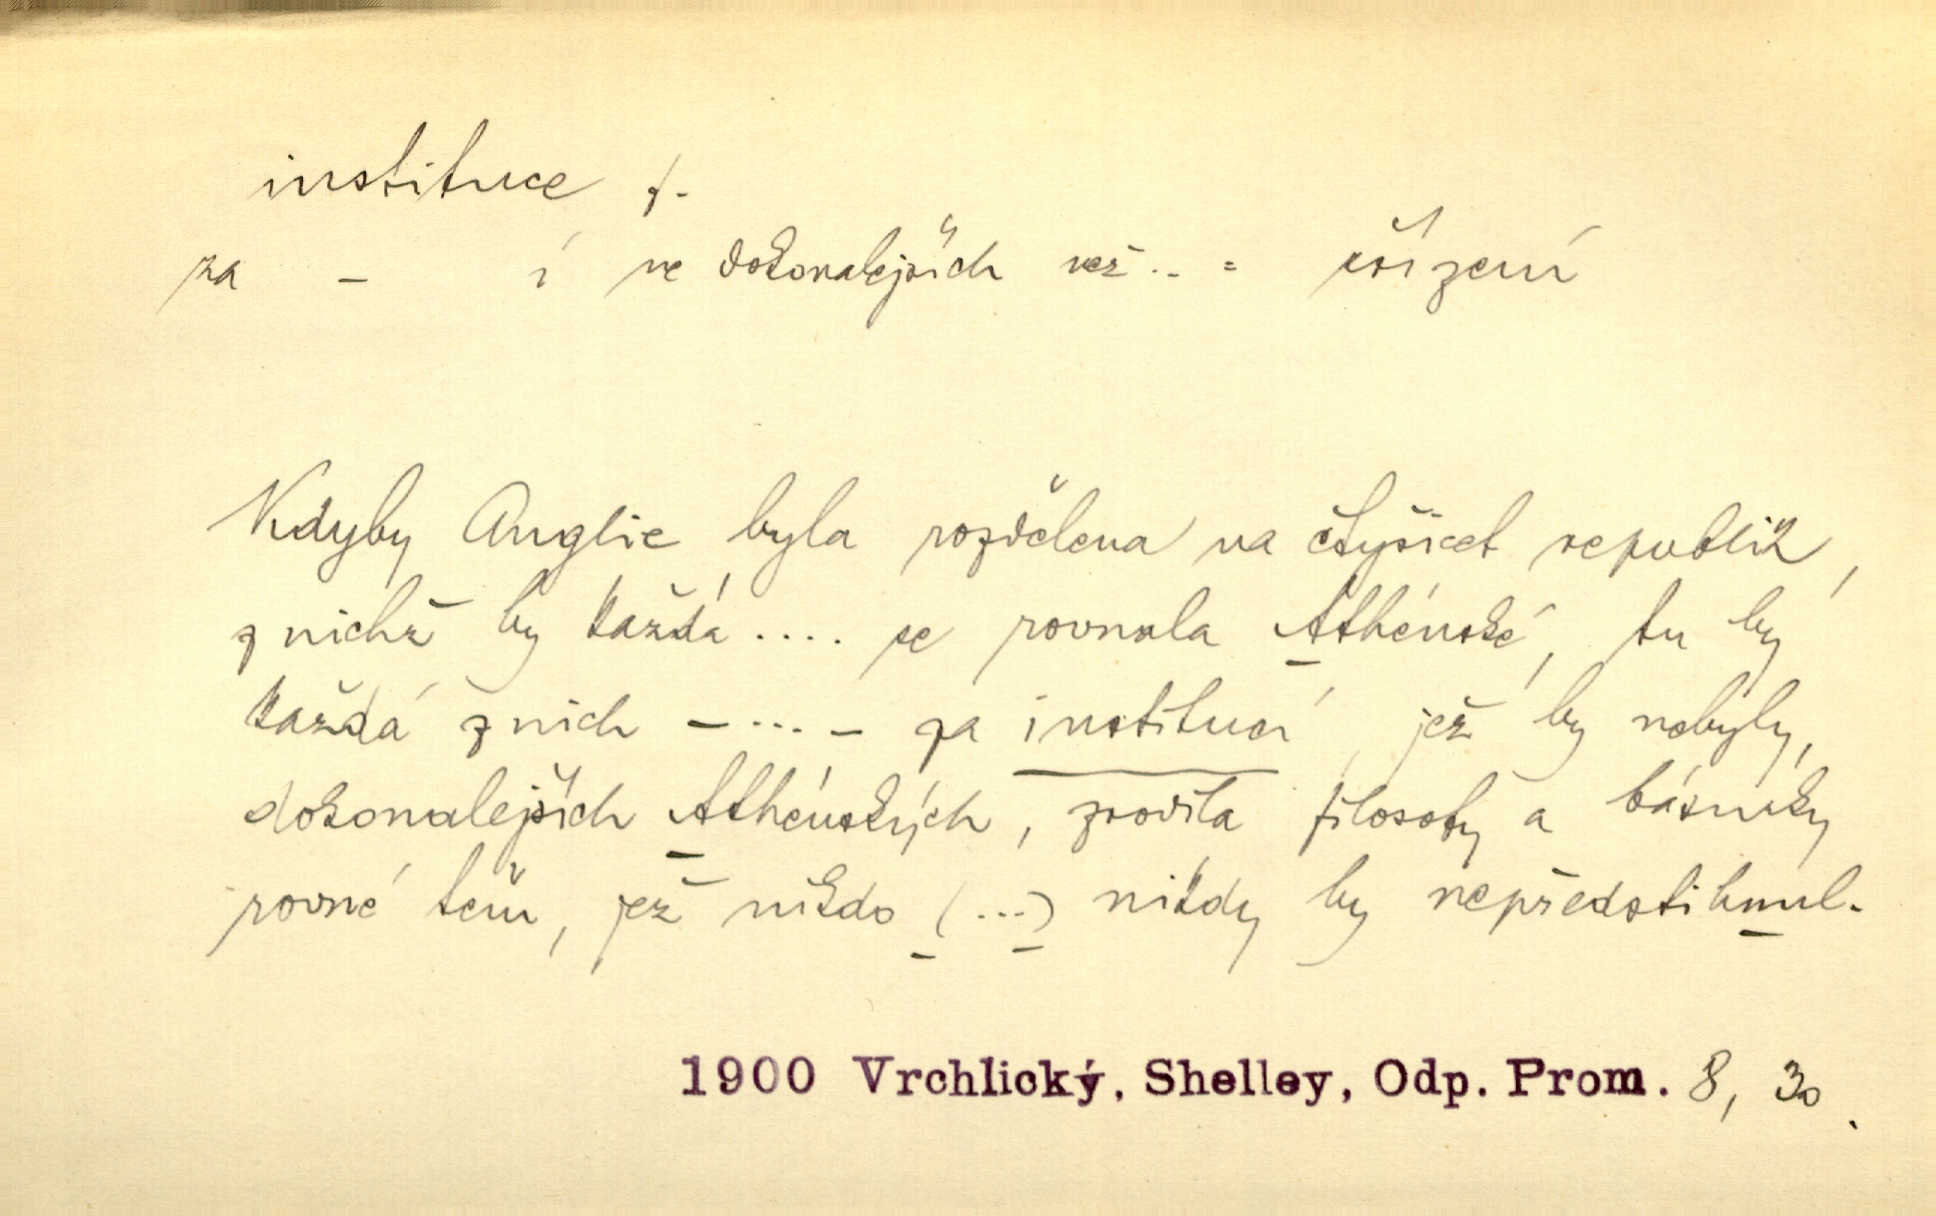 instituce f.
za – í ne dokonalejších než .. = zřízení
Kdyby Anglie byla rozdělena na čtyřicet republik,
z nichž by každá .... se rovnala Athénské, tu by
každá z nich – ... – za institucí, jež by nebyly,
dokonalejších Athénských, zrodila filosofy a básníky
rovné těm, jež nikdo (...) nikdy by nepředstihnul.
1900 Vrchlický, Shelley, Odp. Prom. 8, 30.